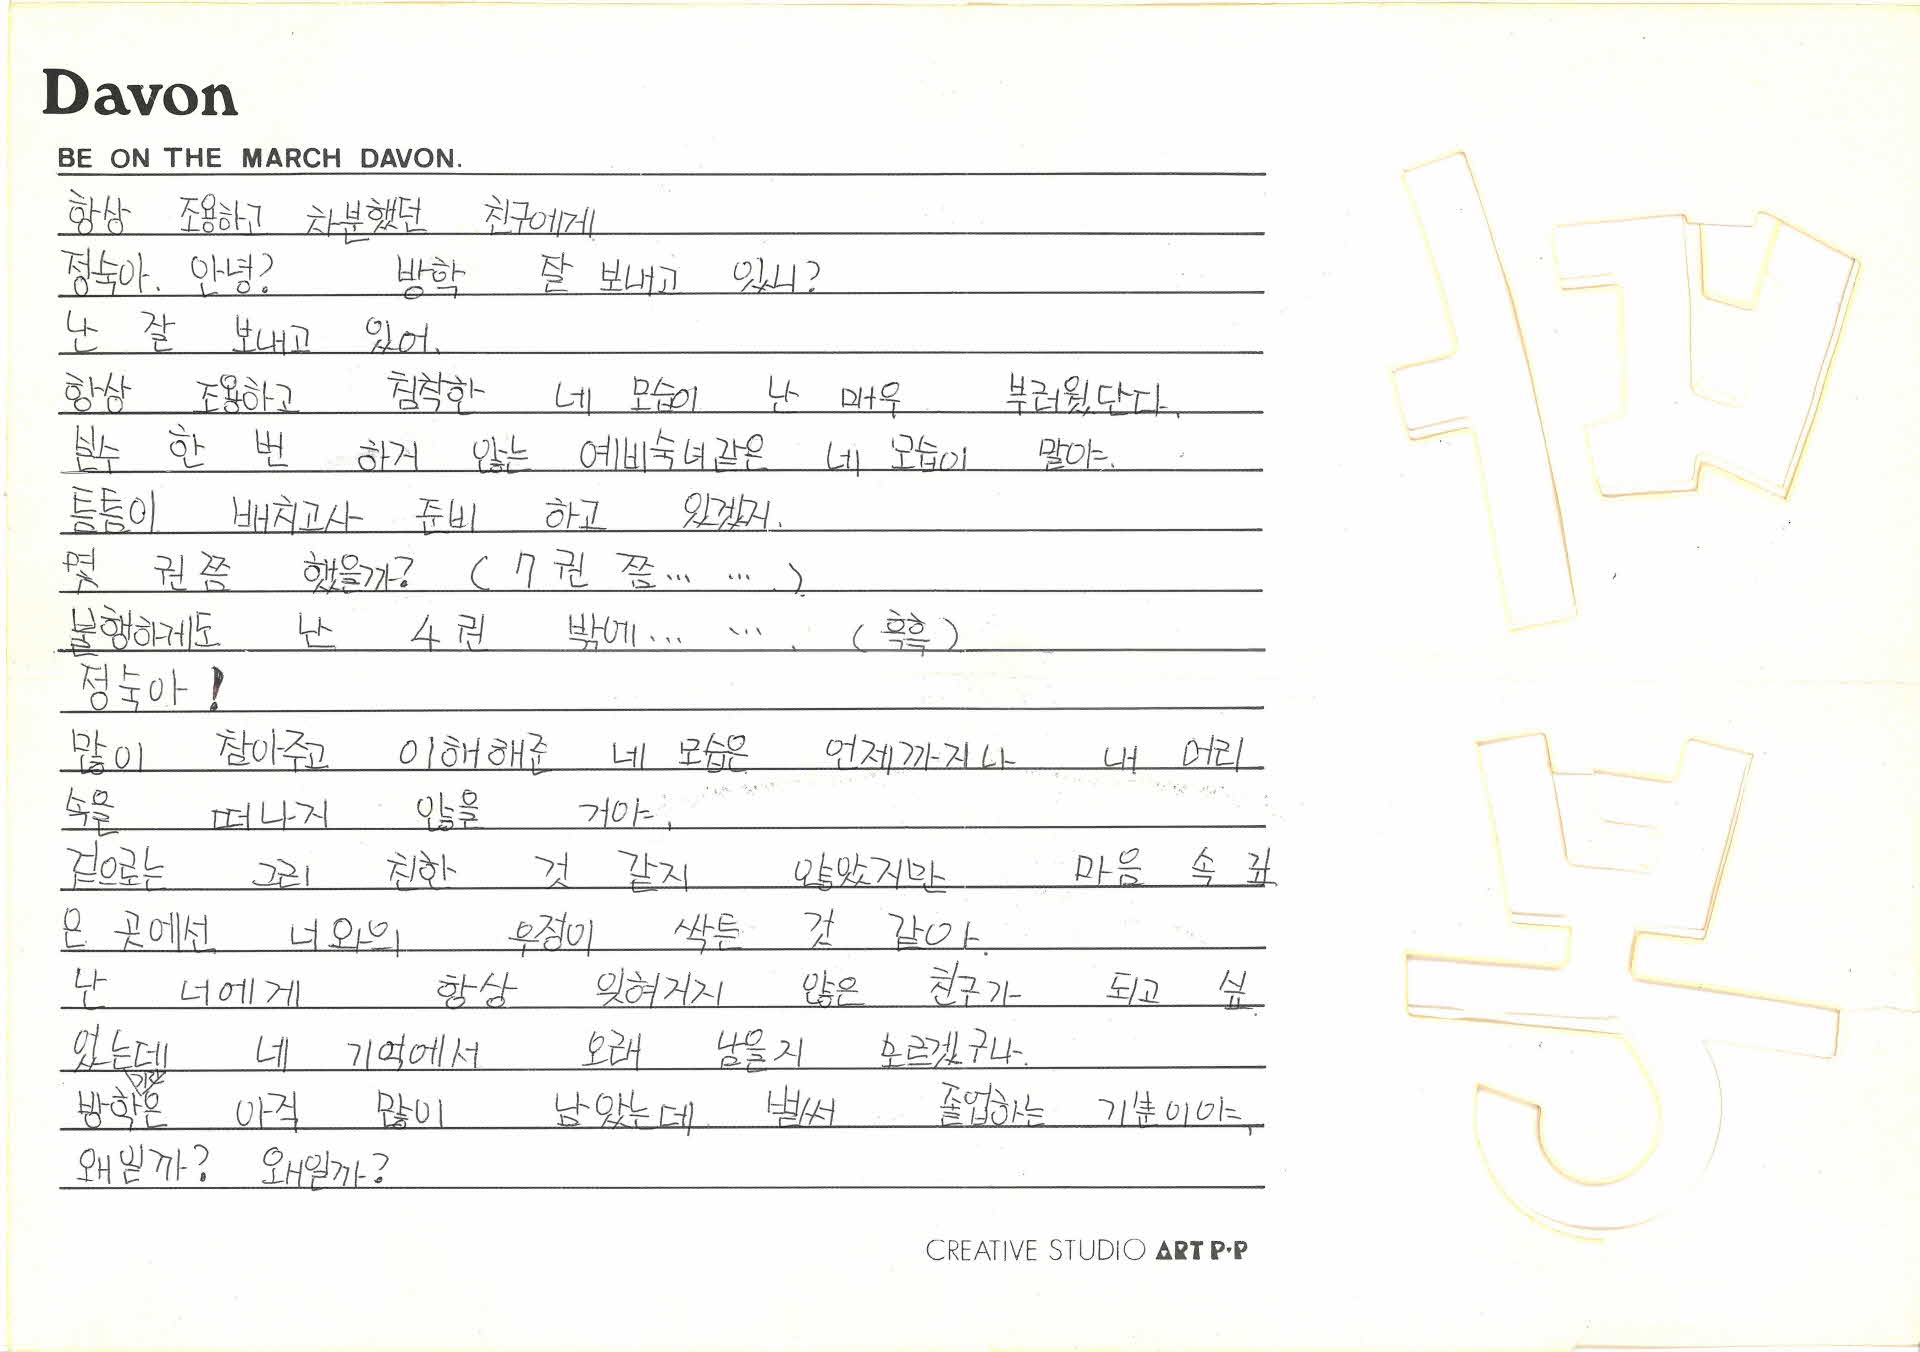 Davon
BE ON THE MARCH DAVON.
항상 조용하고 차분했던 친구에게
정숙아. 안녕? 방학 잘 보내고 있니?
난 잘 보내고 있어.
항상 조용하고 침착한 네 모습이 난 매우 부러웠단다.
분수 한 번 하거 않는 예비숙녀같은 네 모습이 말야.
틈틈이 배치고사 준비 하고 있겠지.
몇 권쯤 했을까? (7권 쯤… … .)
불행하게도 난 4권 밖에… … . (흑흑)
정숙아!
많이 참아주고 이해해준 네 모습은 언제까지나 내 머리
속을 떠나지 않을 거야.
겉으로는 그리 친한 것 같지 않았지만 마음 속 깊
은 곳에선 너와의 우정이 싹튼 것 같아.
난 너에게 항상 잊혀거지 않은 친구가 되고 싶
었는데 네 기억에서 오래 남을지 모르겠구나.
방학기간은 아직 많이 남았는데 벌써 졸업하는 기분이야.
왜일까? 왜일까?
CREATIVE STUDIO ART P·P